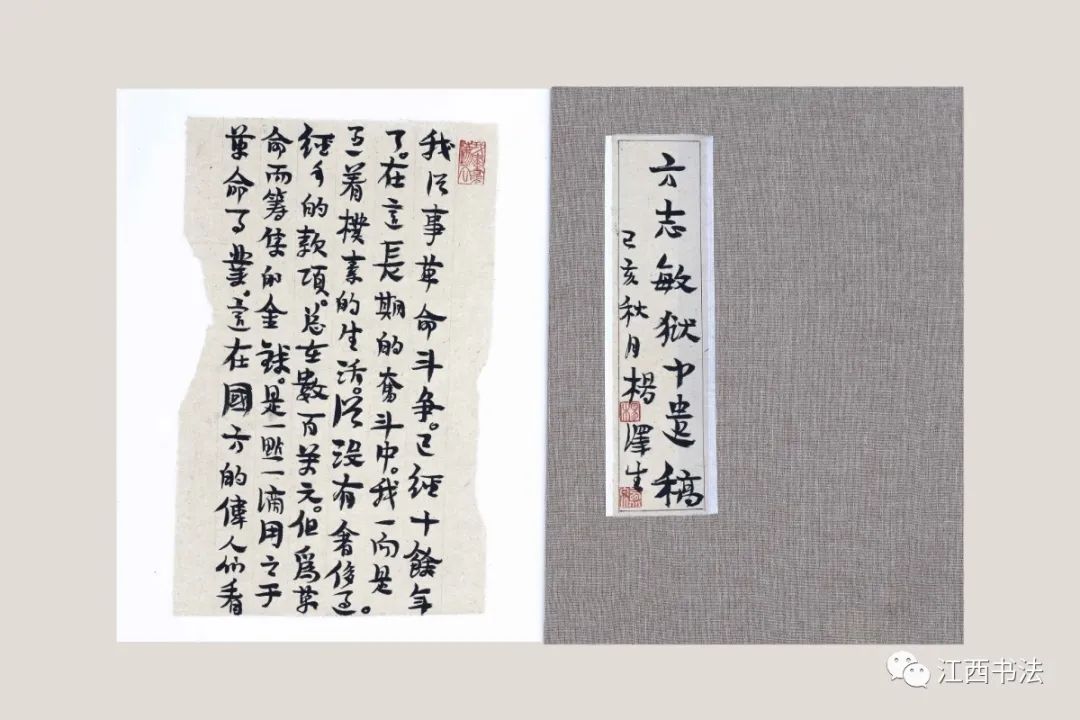 方志敏狱中遺稿
己亥秋月楊澤生
我從事革命斗争。已經十餘年
了。在這長期的奮斗中。我一向是
过着樸素的生活。從没有奢侈过。
經手的款項。总在數百萬元。但爲革
命而筹集的金錢。是一點一滴用之于
革命事業。這在國方的偉人们看
江西书法